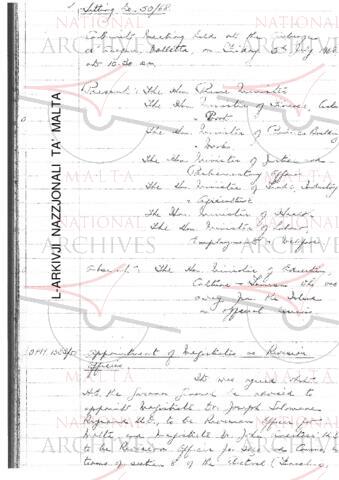 Sitting No. 50/68.
Cabinet Meeting held at the Auberge
Valletta on Friday 5th July 1968
at 10.30 am
Present: The Hon. Prime Minister
The Hon. Minister of Finance, Customs
& Port
The Hon. Minister of Public Building
& Works
The Hon. Minister of Justice and
Parliamentary Affairs
The Hon. Minister of Trade, Industry
& Agriculture
The Hon. Minister of Health
The Hon. Minister of Labour,
Employment & Welfare
Absent: The Hon. Minister of Education,
Culture & Tourism who was
away from the Island
on official
OPM
Appointment of Magistrates as Revision
Officers
It was agreed that
H.E. the Governor General be advised to
appoint Magistrate Dr. Joseph
LL.D., to be Revision Officer for
Malta and Magistrate Dr. John
to be Revision Officer for Gozo and Comino, in
terms of section of the Electoral (Franchise,
L-ARKIVJI NAZZJONALI TA' MALTA
NATIONAL
ARCHIVES
MALTA